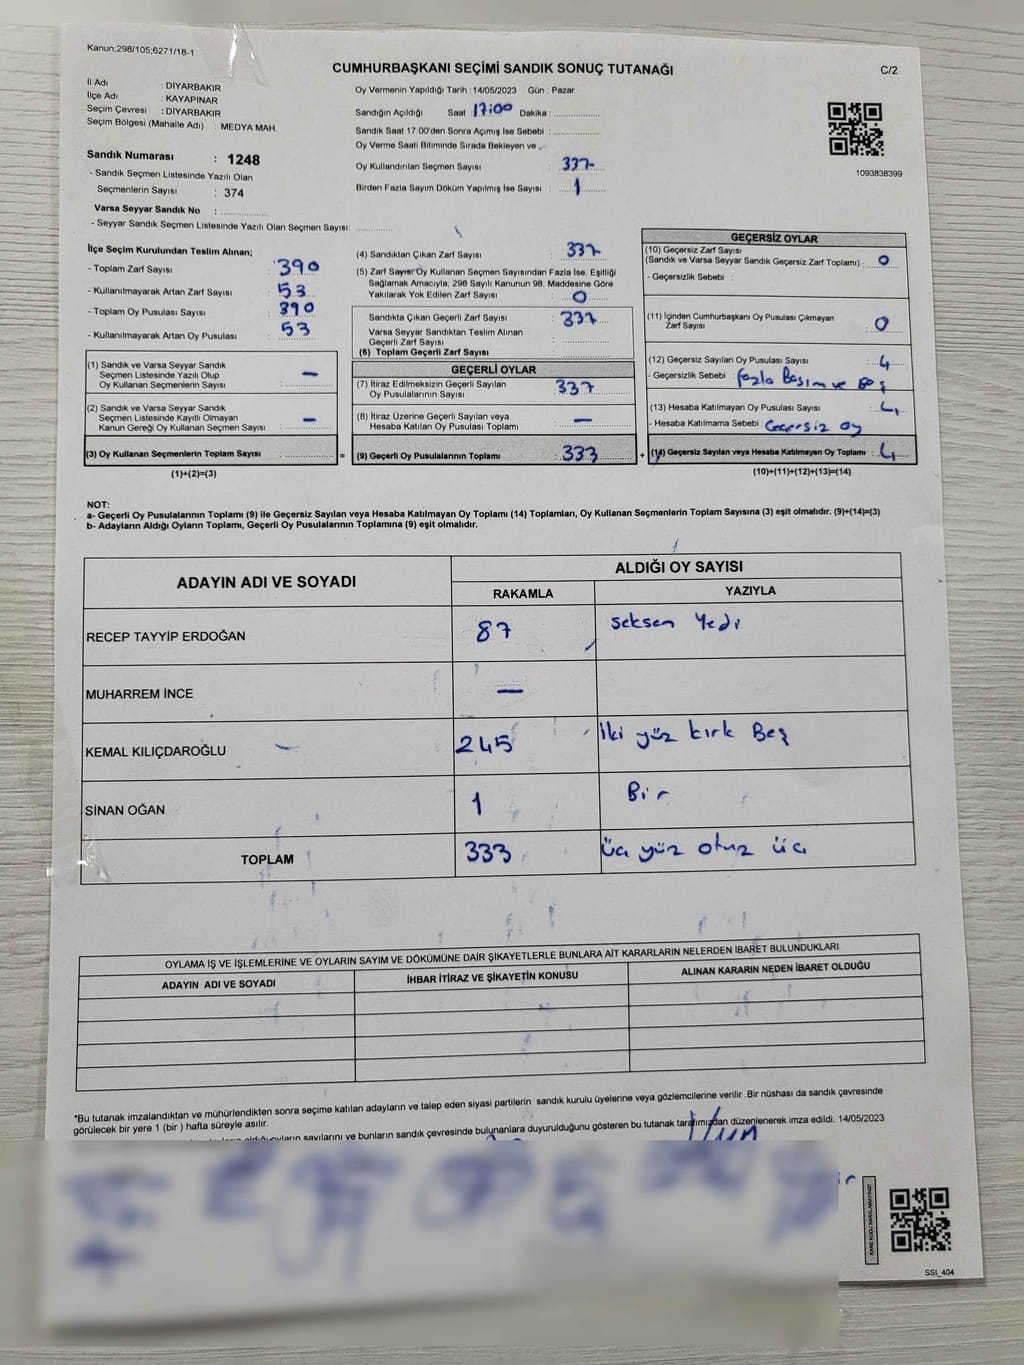 Kanun;298/105;6271/18-1
CUMHURBAŞKANI SEÇİMİ SANDIK SONUÇ TUTANAĞI
C/2
İl Adı : DİYARBAKIR
İlçe Adı : KAYAPINAR
Seçim Çevresi : DİYARBAKIR
Seçim Bölgesi (Mahalle Adı) : MEDYA MAH.
Sandık Numarası : 1248
- Sandık Seçmen Listesinde Yazılı Olan
Seçmenlerin Sayısı : 374
Varsa Seyyar Sandık No :
- Seyyar Sandık Seçmen Listesinde Yazılı Olan Seçmen Sayısı:
Oy Vermenin Yapıldığı Tarih : 14/05/2023 Gün : Pazar
Sandığın Açıldığı Saat : 17:00 Dakika :
Sandık Saat 17:00'den Sonra Açımış İse Sebebi :
Oy Verme Saati Bitiminde Sırada Bekleyen ve
Oy Kullandırılan Seçmen Sayısı : 337
Birden Fazla Sayım Döküm Yapılmış İse Sayısı : 1
1093838399
İlçe Seçim Kurulundan Teslim Alınan;
- Toplam Zarf Sayısı : 390
- Kullanılmayarak Artan Zarf Sayısı : 53
- Toplam Oy Pusulası Sayısı : 390
- Kullanılmayarak Artan Oy Pusulası : 53
(1) Sandık ve Varsa Seyyar Sandık
Seçmen Listesinde Yazılı Olup
Oy Kullanan Seçmenlerin Sayısı : —
(2) Sandık ve Varsa Seyyar Sandık
Seçmen Listesinde Kayıtlı Olmayan
Kanun Gereği Oy Kullanan Seçmen Sayısı : —
(3) Oy Kullanan Seçmenlerin Toplam Sayısı :
(1)+(2)=(3)
(4) Sandıktan Çıkan Zarf Sayısı : 337
(5) Zarf Sayısı Oy Kullanan Seçmen Sayısından Fazla İse, Eşitliği
Sağlamak Amacıyla; 298 Sayılı Kanunun 98. Maddesine Göre
Yakılarak Yok Edilen Zarf Sayısı : 0
Sandıkta Çıkan Geçerli Zarf Sayısı : 337
Varsa Seyyar Sandıktan Teslim Alınan
Geçerli Zarf Sayısı :
(6) Toplam Geçerli Zarf Sayısı :
GEÇERLİ OYLAR
(7) İtiraz Edilmeksizin Geçerli Sayılan
Oy Pusulalarının Sayısı : 337
(8) İtiraz Üzerine Geçerli Sayılan veya
Hesaba Katılan Oy Pusulası Toplamı : —
= (9) Geçerli Oy Pusulalarının Toplamı : 333 +
GEÇERSİZ OYLAR
(10) Geçersiz Zarf Sayısı
(Sandık ve Varsa Seyyar Sandık Geçersiz Zarf Toplamı) : 0
- Geçersizlik Sebebi :
(11) İçinden Cumhurbaşkanı Oy Pusulası Çıkmayan
Zarf Sayısı : 0
(12) Geçersiz Sayılan Oy Pusulası Sayısı : 4
- Geçersizlik Sebebi : fazla Basım ve Boş
(13) Hesaba Katılmayan Oy Pusulası Sayısı : 4
- Hesaba Katılmama Sebebi : Geçersiz oy
(14) Geçersiz Sayılan veya Hesaba Katılmayan Oy Toplamı : 4
(10)+(11)+(12)+(13)=(14)
NOT:
a- Geçerli Oy Pusulalarının Toplamı (9) ile Geçersiz Sayılan veya Hesaba Katılmayan Oy Toplamı (14) Toplamları, Oy Kullanan Seçmenlerin Toplam Sayısına (3) eşit olmalıdır. (9)+(14)=(3)
b- Adayların Aldığı Oyların Toplamı, Geçerli Oy Pusulalarının Toplamına (9) eşit olmalıdır.
ADAYIN ADI VE SOYADI
ALDIĞI OY SAYISI
RAKAMLA YAZIYLA
RECEP TAYYİP ERDOĞAN 87 seksen Yedi
MUHARREM İNCE —
KEMAL KILIÇDAROĞLU 245 İki yüz kırk Beş
SİNAN OĞAN 1 Bir
TOPLAM 333 üç yüz otuz üç
OYLAMA İŞ VE İŞLEMLERİNE VE OYLARIN SAYIM VE DÖKÜMÜNE DAİR ŞİKAYETLERLE BUNLARA AİT KARARLARIN NELERDEN İBARET BULUNDUKLARI
ADAYIN ADI VE SOYADI İHBAR İTİRAZ VE ŞİKAYETİN KONUSU ALINAN KARARIN NEDEN İBARET OLDUĞU
*Bu tutanak imzalandıktan ve mühürlendikten sonra seçime katılan adayların ve talep eden siyasi partilerin sandık kurulu üyelerine veya gözlemcilerine verilir .Bir nüshası da sandık çevresinde
görülecek bir yere 1 (bir ) hafta süreyle asılır.
sayılarını ve bunların sandık çevresinde bulunanlara duyurulduğunu gösteren bu tutanak tarafımızdan düzenlenerek imza edildi. 14/05/2023
KARE KODU KARALAMAYINIZ!
SSI_404